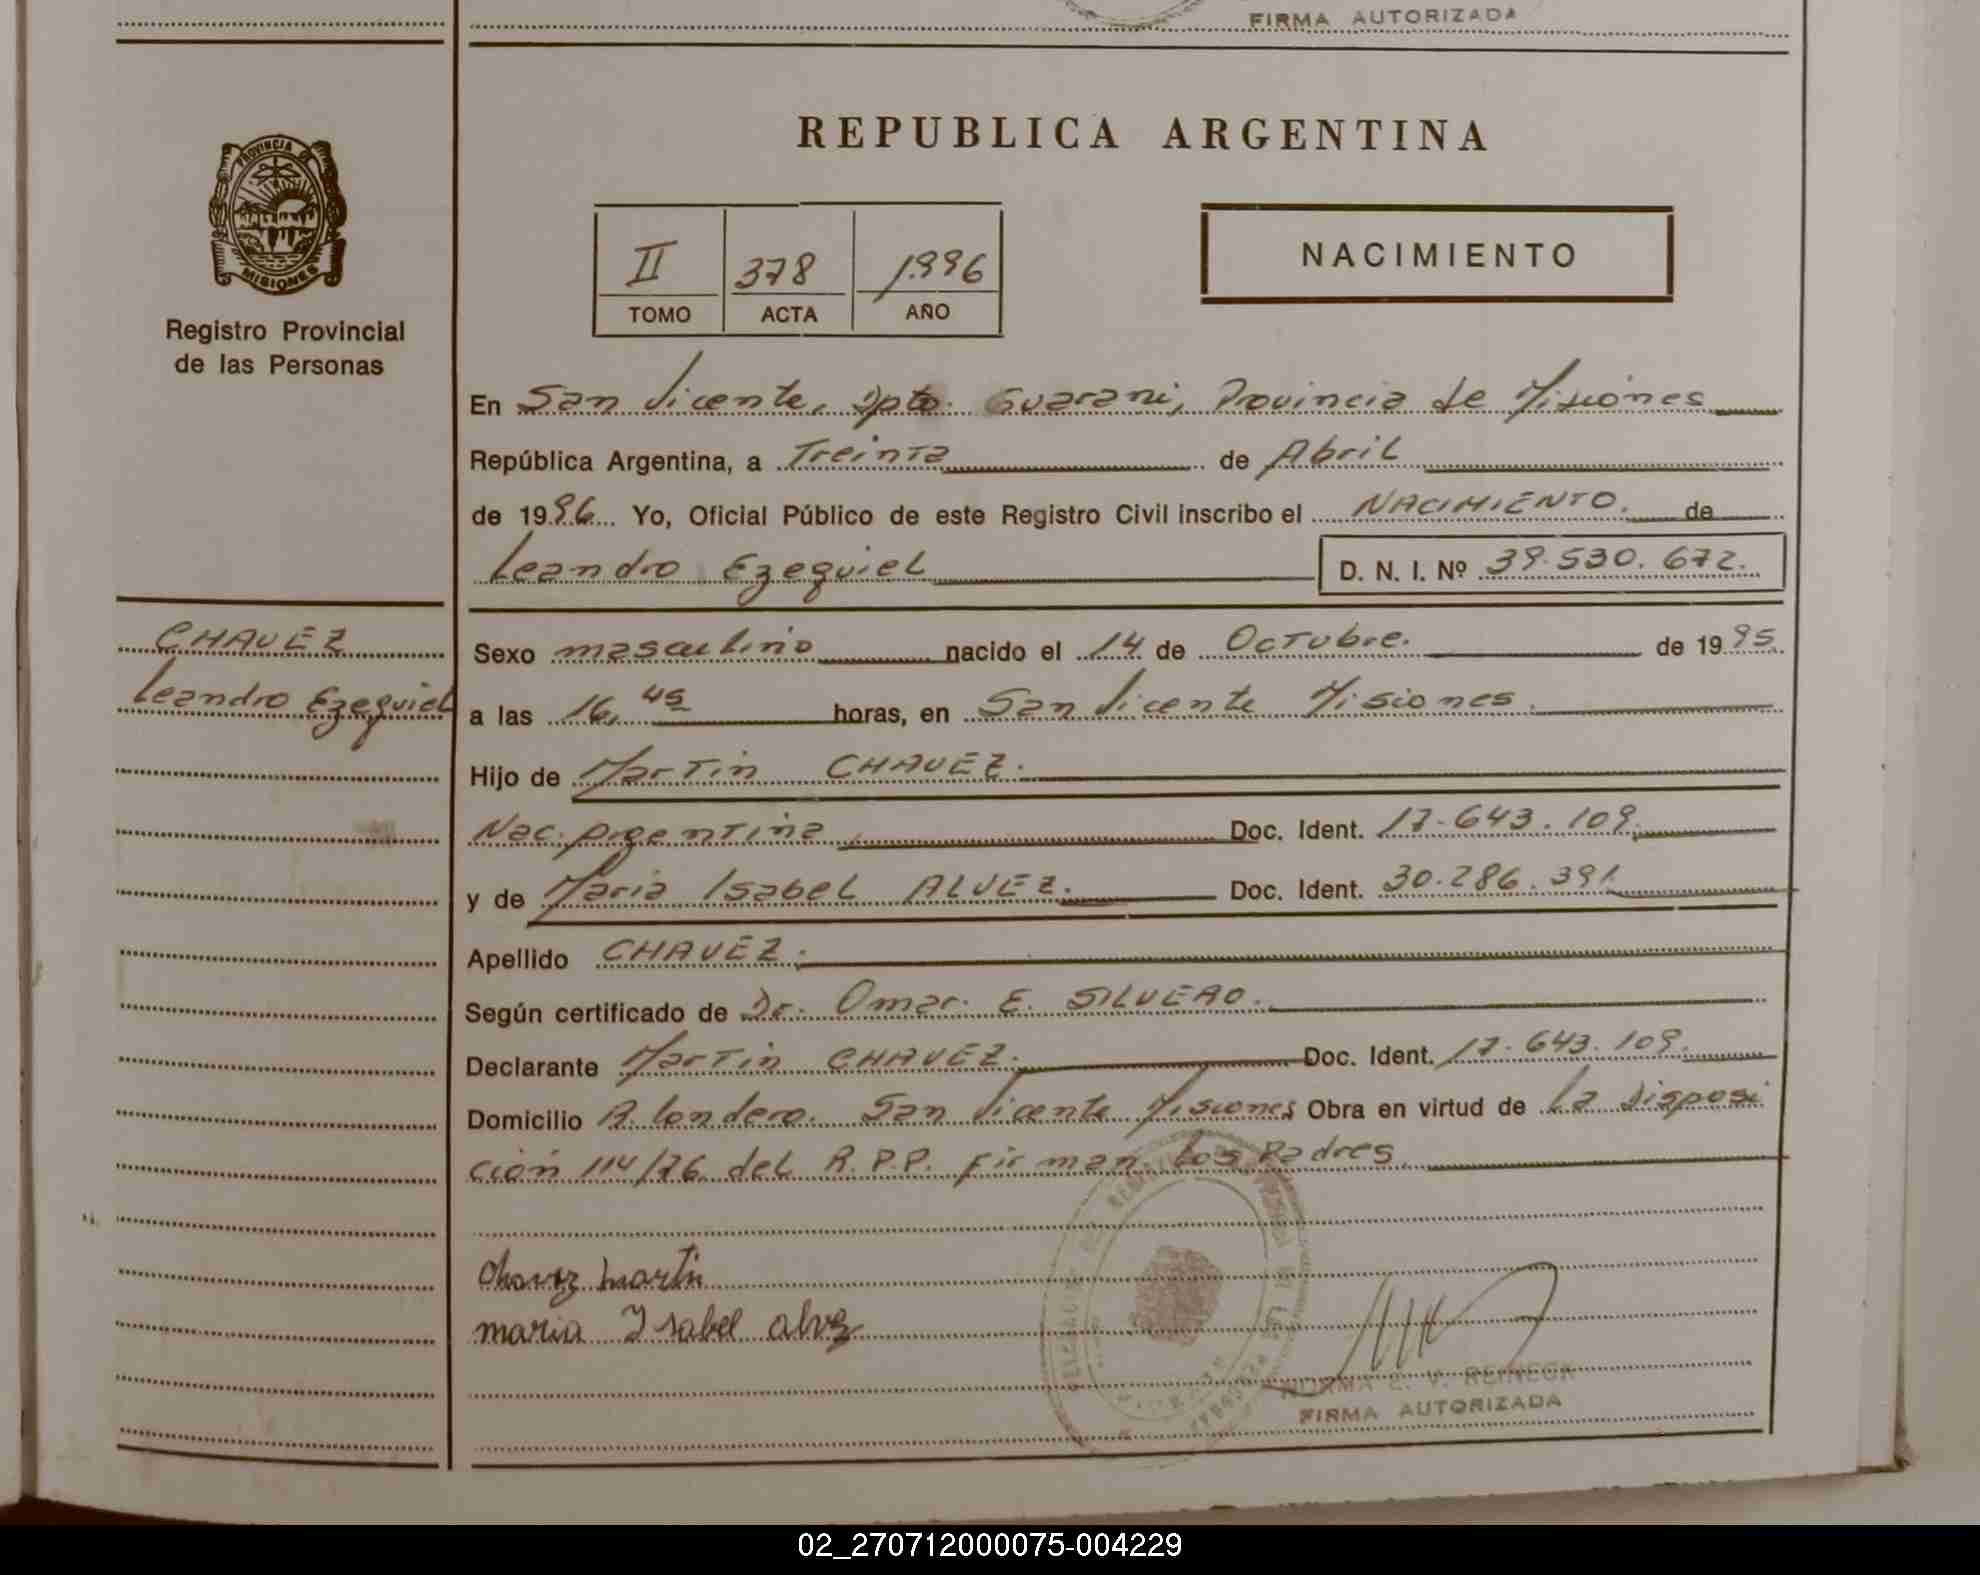 FIRMA AUTORIZADA
PROVINCIA DE
MISIONES
Registro Provincial
de las Personas
REPUBLICA ARGENTINA
II 378 1996
TOMO ACTA AÑO
NACIMIENTO
En San Vicente, Dpto. Guarani, Provincia de Misiones
República Argentina, a Treinta de Abril
de 1996 Yo, Oficial Público de este Registro Civil inscribo el NACIMIENTO. de
Leandro Ezequiel D. N. I. Nº 39.530.672.
CHAVEZ
Leandro Ezequiel
Sexo masculino nacido el 14 de Octubre. de 1995.
a las 16, 45 horas, en San Vicente Misiones.
Hijo de Martin CHAVEZ.
Nac. Argentina Doc. Ident. 17.643.109.
y de Maria Isabel ALVEZ. Doc. Ident. 30.286.391.
Apellido CHAVEZ.
Según certificado de Dr. Omar. E. SILVERO.
Declarante Martin CHAVEZ. Doc. Ident. 17.643.109.
Domicilio R. Londero. San Vicente Misiones Obra en virtud de la Disposi
ción 114/76 del R.P.P. Firman. Los Padres.
Chavez Martin
maria Isabel alvez
NORMA E. V. REINECK
FIRMA AUTORIZADA
02_270712000075-004229